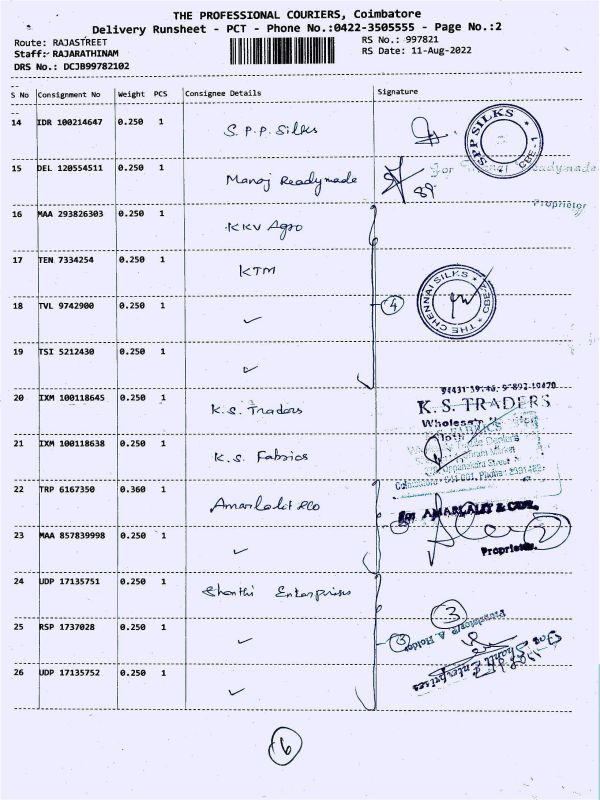 THE PROFESSIONAL COURIERS, Coimbatore
Delivery Runsheet - PCT - Phone No.:0422-3505555 - Page No.:2
Route: RAJASTREET
RS No.: 997821
Staff: RAJARATHINAM
RS Date: 11-Aug-2022
DRS No.: DCJB99782102
S No Consignment No Weight PCS Consignee Details Signature
14 IDR 100214647 0.250 1 S.P.P. Silks
SPP SILKS * CBE-1 *
15 DEL 120554511 0.250 1 Manoj Readymade
89
For
Proprietor
16 MAA 293826303 0.250 1 KKV Agro
17 TEN 7334254 0.250 1 KTM
18 TVL 9742900 0.250 1 ✓ 4
* THE CHENNAI SILKS * CBE-1
19 TSI 5212430 0.250 1 ✓
20 IXM 100118645 0.250 1 K.S. Traders
K. S. TRADERS
Wholesale
21 IXM 100118638 0.250 1 K.S. Fabrics
22 TRP 6167350 0.360 1 Amarlalit &co
For AMARLALIT & CO.,
2
Proprietor
23 MAA 857839998 0.250 1 ✓
24 UDP 17135751 0.250 1 Shanthi Enterprises
3
25 RSP 1737028 0.250 1 ✓ 3
For Shanti Enterprises
26 UDP 17135752 0.250 1 ✓
6